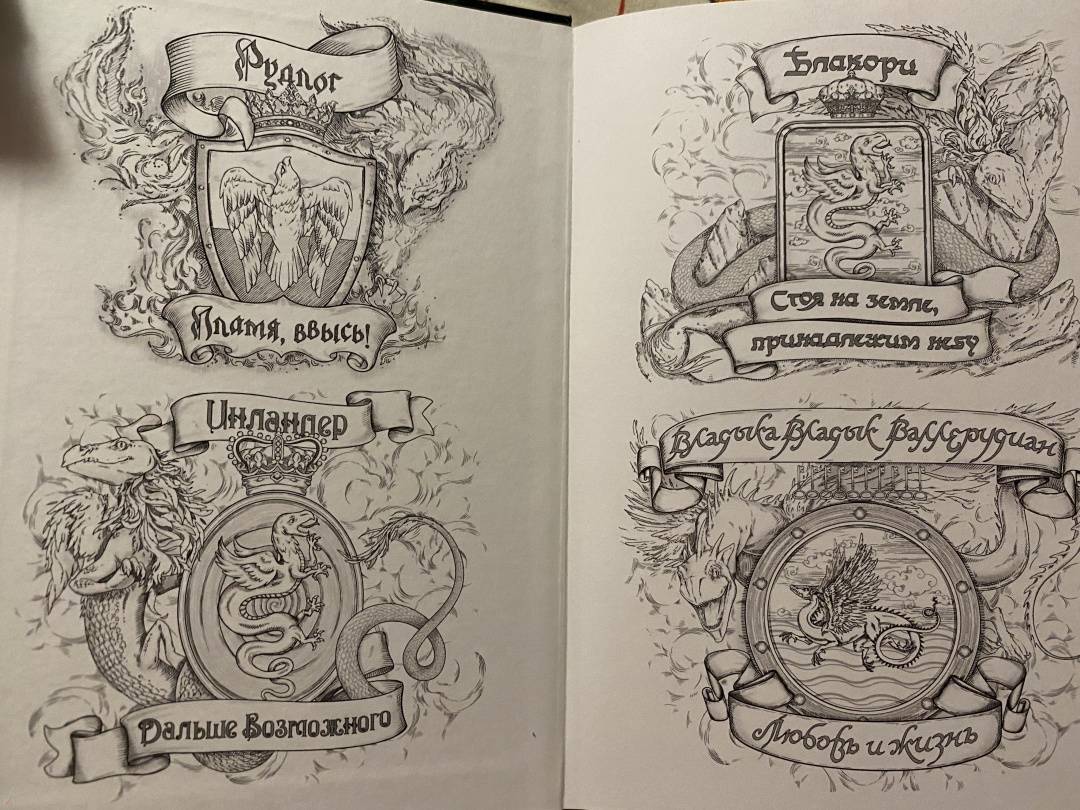 Рудлог
Пламя, ввысь!
Инландер
Дальше Возможного
Блакори
Стоя на земле,
принадлежим небу
Владыка Владык Валлерудиан
Любовь и жизнь